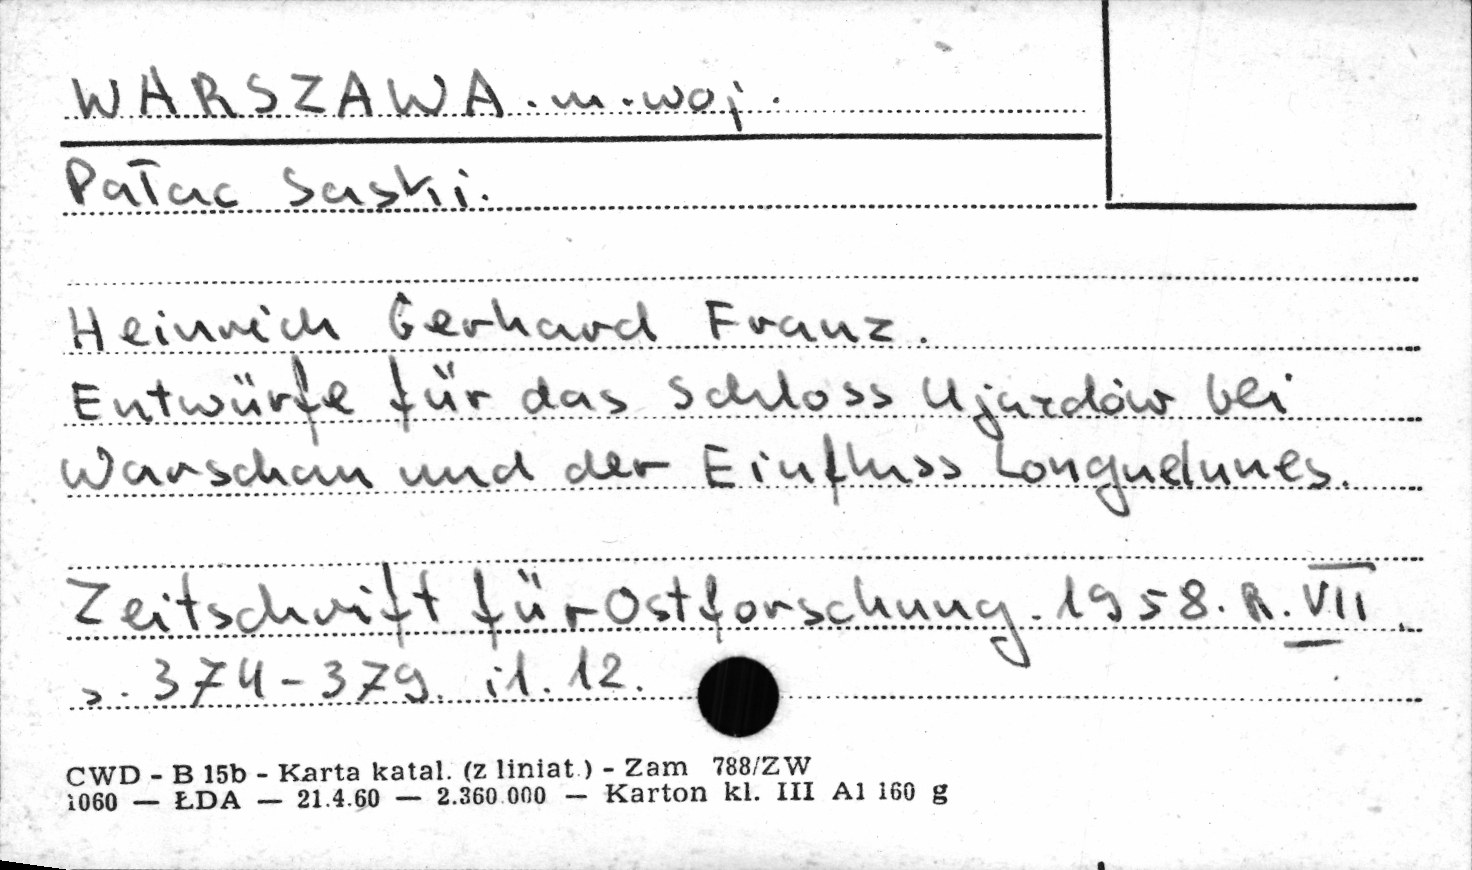 WARSZAWA. m. woj.
Pałac Saski.
Heinrich Gerhard Franz.
Entwürfe für das Schloss Ujazdów bei
Warschau und der Einfluss Longuelunes.
Zeitschrift für Ostforschung. 1958. R. VII.
s. 374-379. il. 12.
CWD - B 15b - Karta katal. (z liniat.) - Zam 788/ZW
1060 — ŁDA — 21.4.60 — 2.360.000 — Karton kl. III A1 160 g